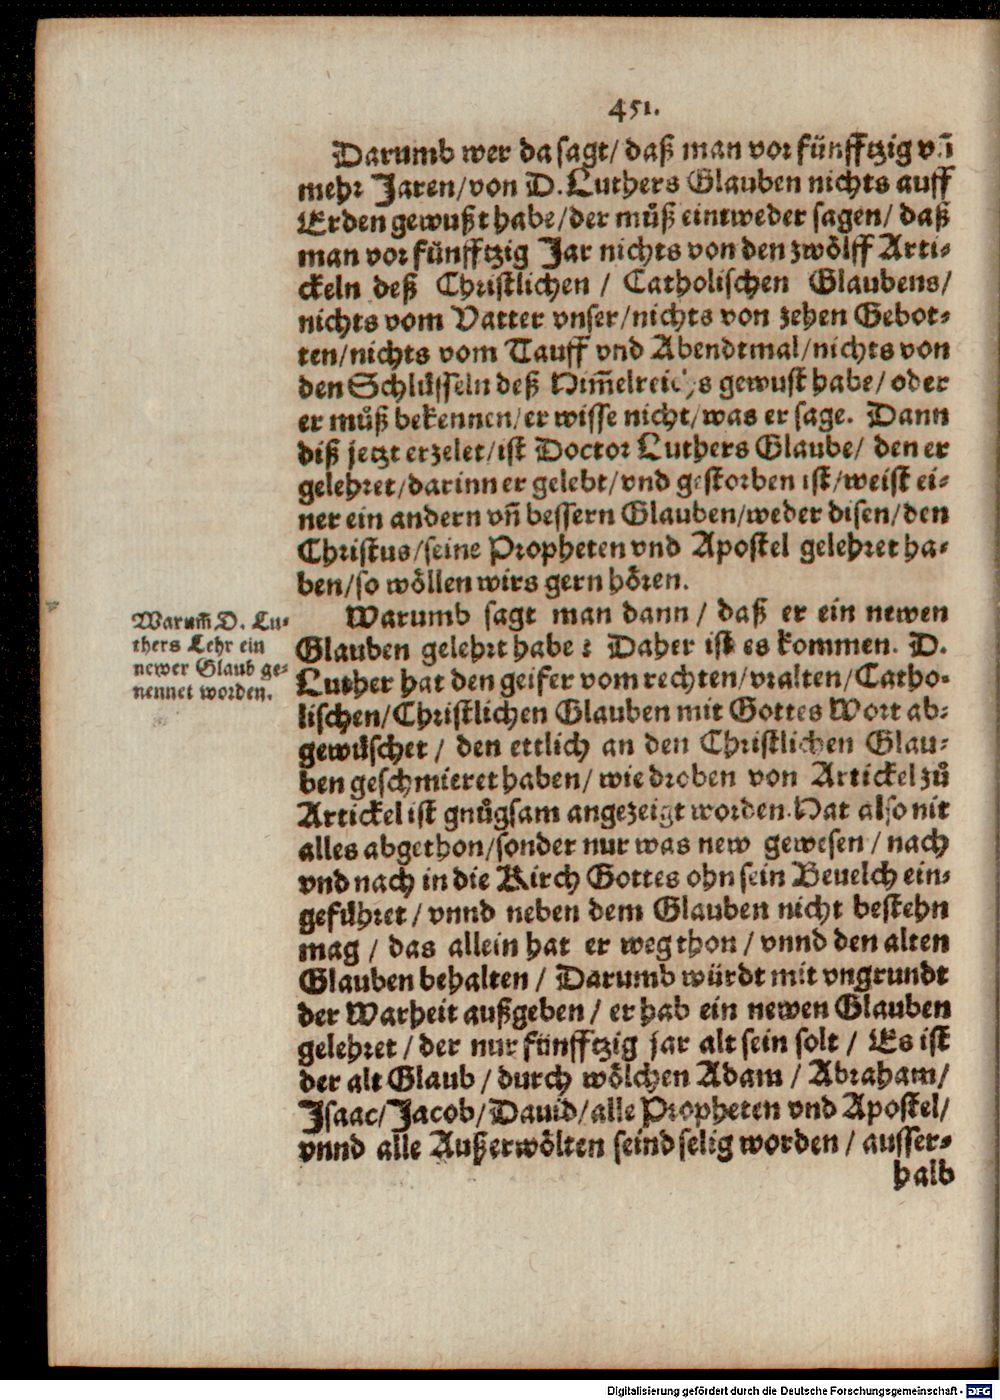 451.
Darumb wer da sagt/ daß man vor fünfftzig vñ
mehr Jaren/von D. Luthers Glauben nichts auff
Erden gewußt habe/der můß eintweder sagen/ daß
man vor fünfftzig Jar nichts von den zwölff Arti-
ckeln deß Christlichen / Catholischen Glaubens/
nichts vom Vatter vnser/nichts von zehen Gebot-
ten/nichts vom Tauff vnd Abendtmal/nichts von
den Schlüsseln deß Him̃elreichs gewust habe/ oder
er můß bekennen/er wisse nicht/was er sage. Dann
diß jetzt erzelet/ist Doctor Luthers Glaube/ den er
gelehret/darinn er gelebt/vnd gestorben ist/weist ei-
ner ein andern vñ bessern Glauben/weder disen/den
Christus/seine Propheten vnd Apostel gelehret ha-
ben/so wöllen wirs gern hören.
Warum̃ D. Lu-
thers Lehr ein
newer Glaub ge-
nennet worden.
Warumb sagt man dann / daß er ein newen
Glauben gelehrt habe? Daher ist es kommen. D.
Luther hat den geifer vom rechten/vralten/Catho-
lischen/Christlichen Glauben mit Gottes Wort ab-
gewüschet / den ettlich an den Christlichen Glau-
ben geschmieret haben/ wie droben von Artickel zů
Artickel ist gnůgsam angezeigt worden. Hat also nit
alles abgethon/sonder nur was new gewesen / nach
vnd nach in die Kirch Gottes ohn sein Beuelch ein-
geführet / vnnd neben dem Glauben nicht bestehn
mag / das allein hat er weg thon / vnnd den alten
Glauben behalten / Darumb würdt mit vngrundt
der Warheit außgeben / er hab ein newen Glauben
gelehret / der nur fünfftzig jar alt sein solt / Es ist
der alt Glaub / durch wölchen Adam / Abraham/
Isaac/Jacob/Dauid/alle Propheten vnd Apostel/
vnnd alle Außerwölten seind selig worden / ausser-
halb
Digitalisierung gefördert durch die Deutsche Forschungsgemeinschaft - DFG